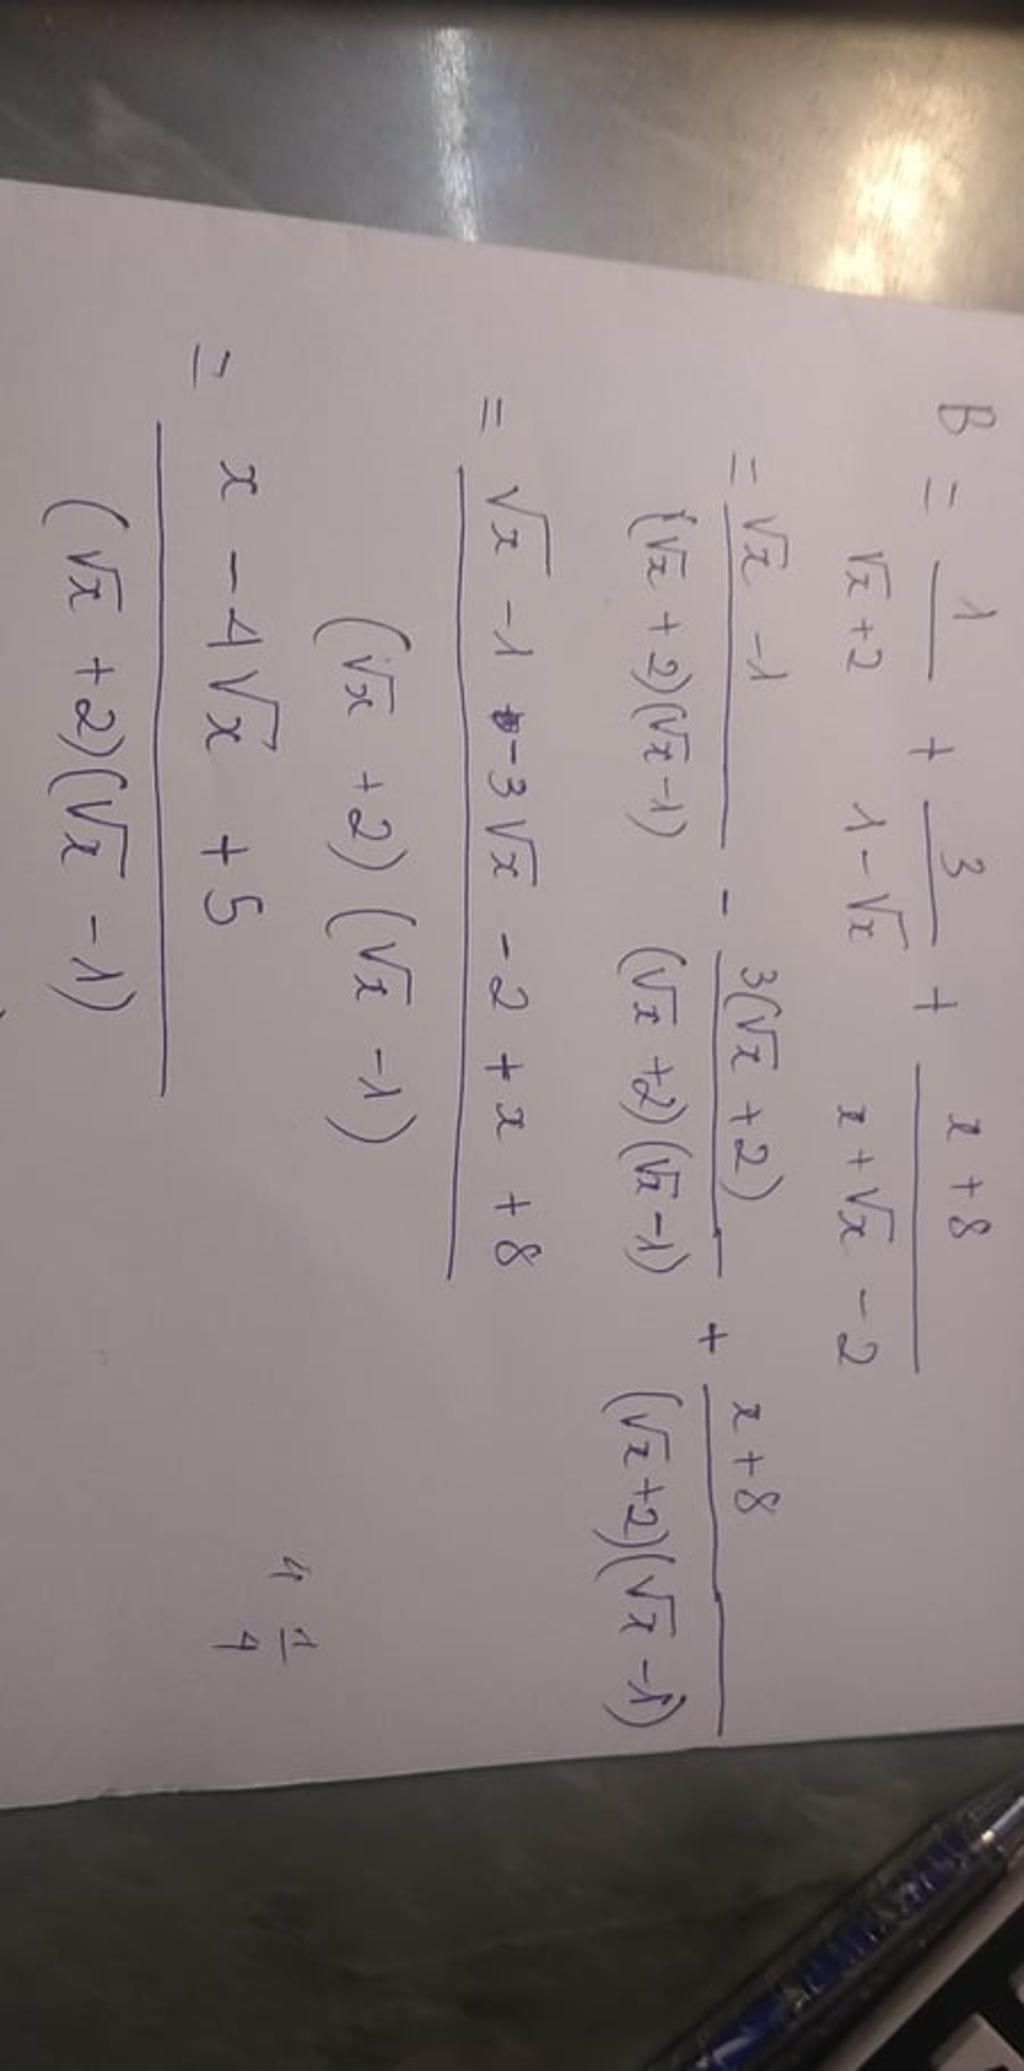 B = 1/(√x + 2) + 3/(1 - √x) + (x + 8)/(x + √x - 2)
= (√x - 1)/((√x + 2)(√x - 1)) - 3(√x + 2)/((√x + 2)(√x - 1)) + (x + 8)/((√x + 2)(√x - 1))
= (√x - 1 - 3√x - 2 + x + 8)/((√x + 2)(√x - 1))
= (x - 4√x + 5)/((√x + 2)(√x - 1))